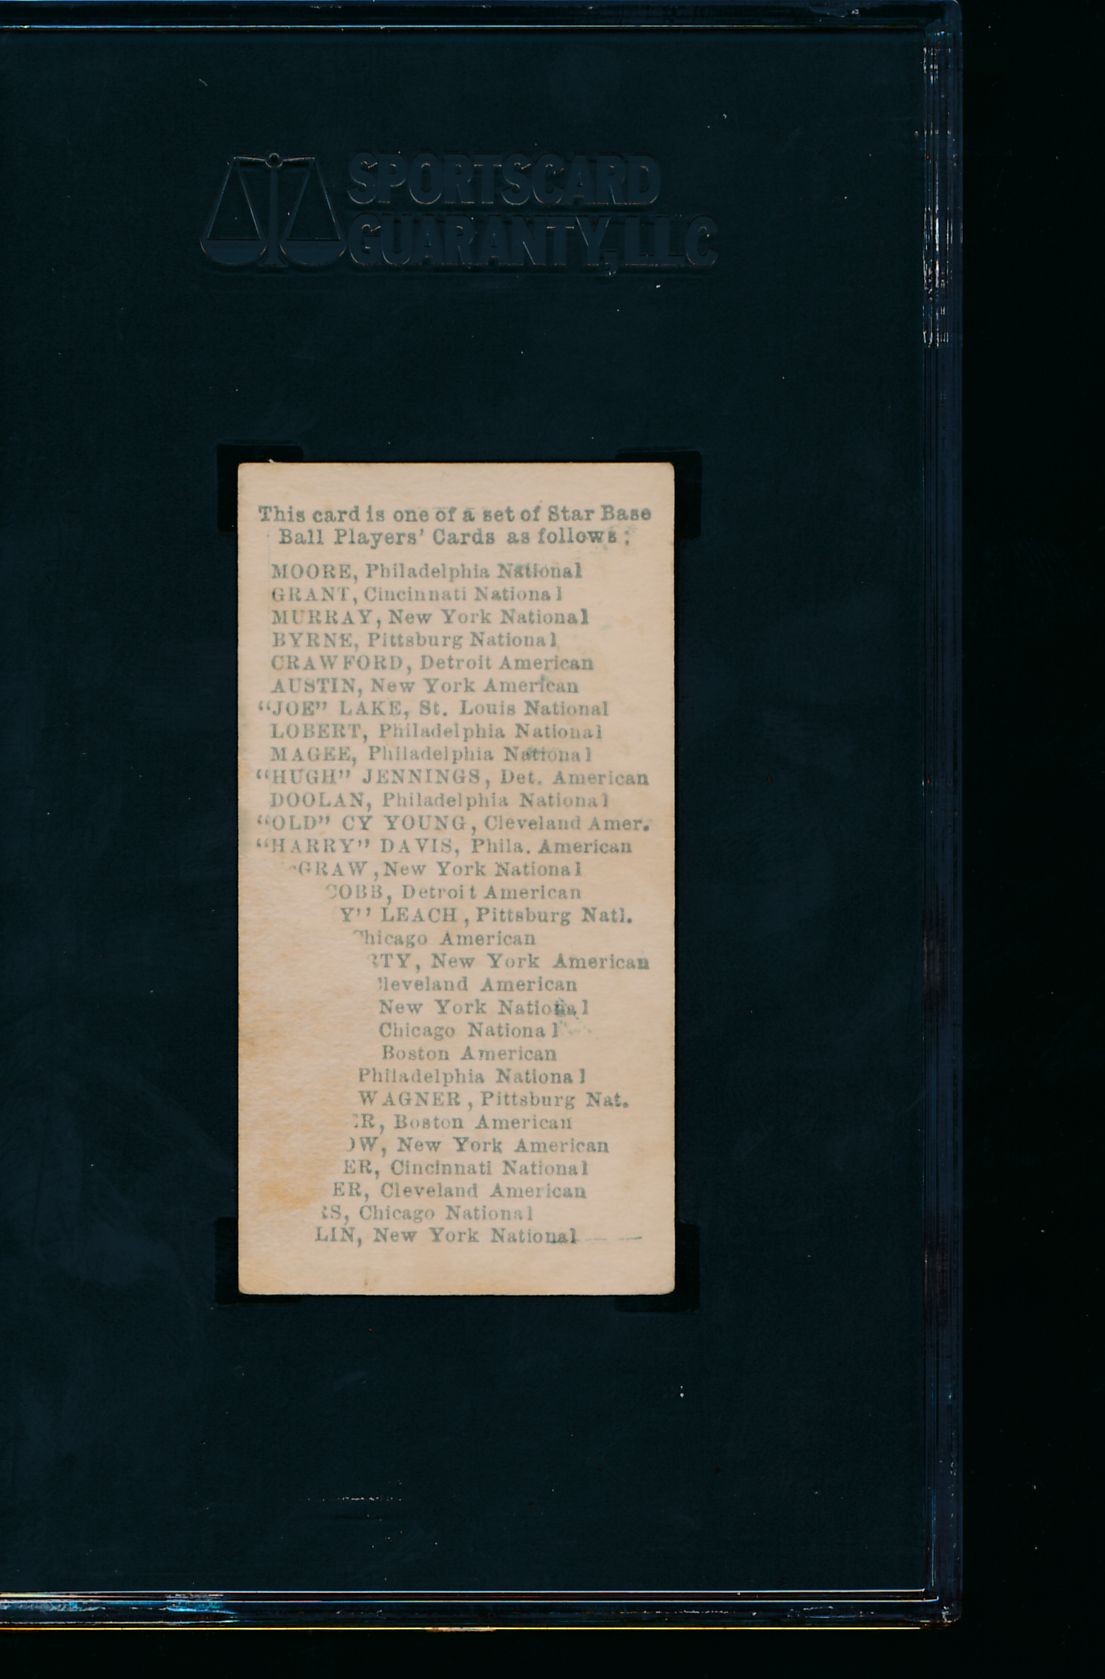 SPORTSCARD
GUARANTY, LLC
This card is one of a set of Star Base
Ball Players' Cards as follows:
MOORE, Philadelphia National
GRANT, Cincinnati National
MURRAY, New York National
BYRNE, Pittsburg National
CRAWFORD, Detroit American
AUSTIN, New York American
“JOE” LAKE, St. Louis National
LOBERT, Philadelphia National
MAGEE, Philadelphia National
“HUGH” JENNINGS, Det. American
DOOLAN, Philadelphia National
“OLD” CY YOUNG, Cleveland Amer.
“HARRY” DAVIS, Phila. American
GRAW, New York National
COBB, Detroit American
Y” LEACH, Pittsburg Natl.
Chicago American
RTY, New York American
Cleveland American
New York National
Chicago National
Boston American
Philadelphia National
WAGNER, Pittsburg Nat.
ER, Boston American
OW, New York American
ER, Cincinnati National
ER, Cleveland American
RS, Chicago National
LIN, New York National